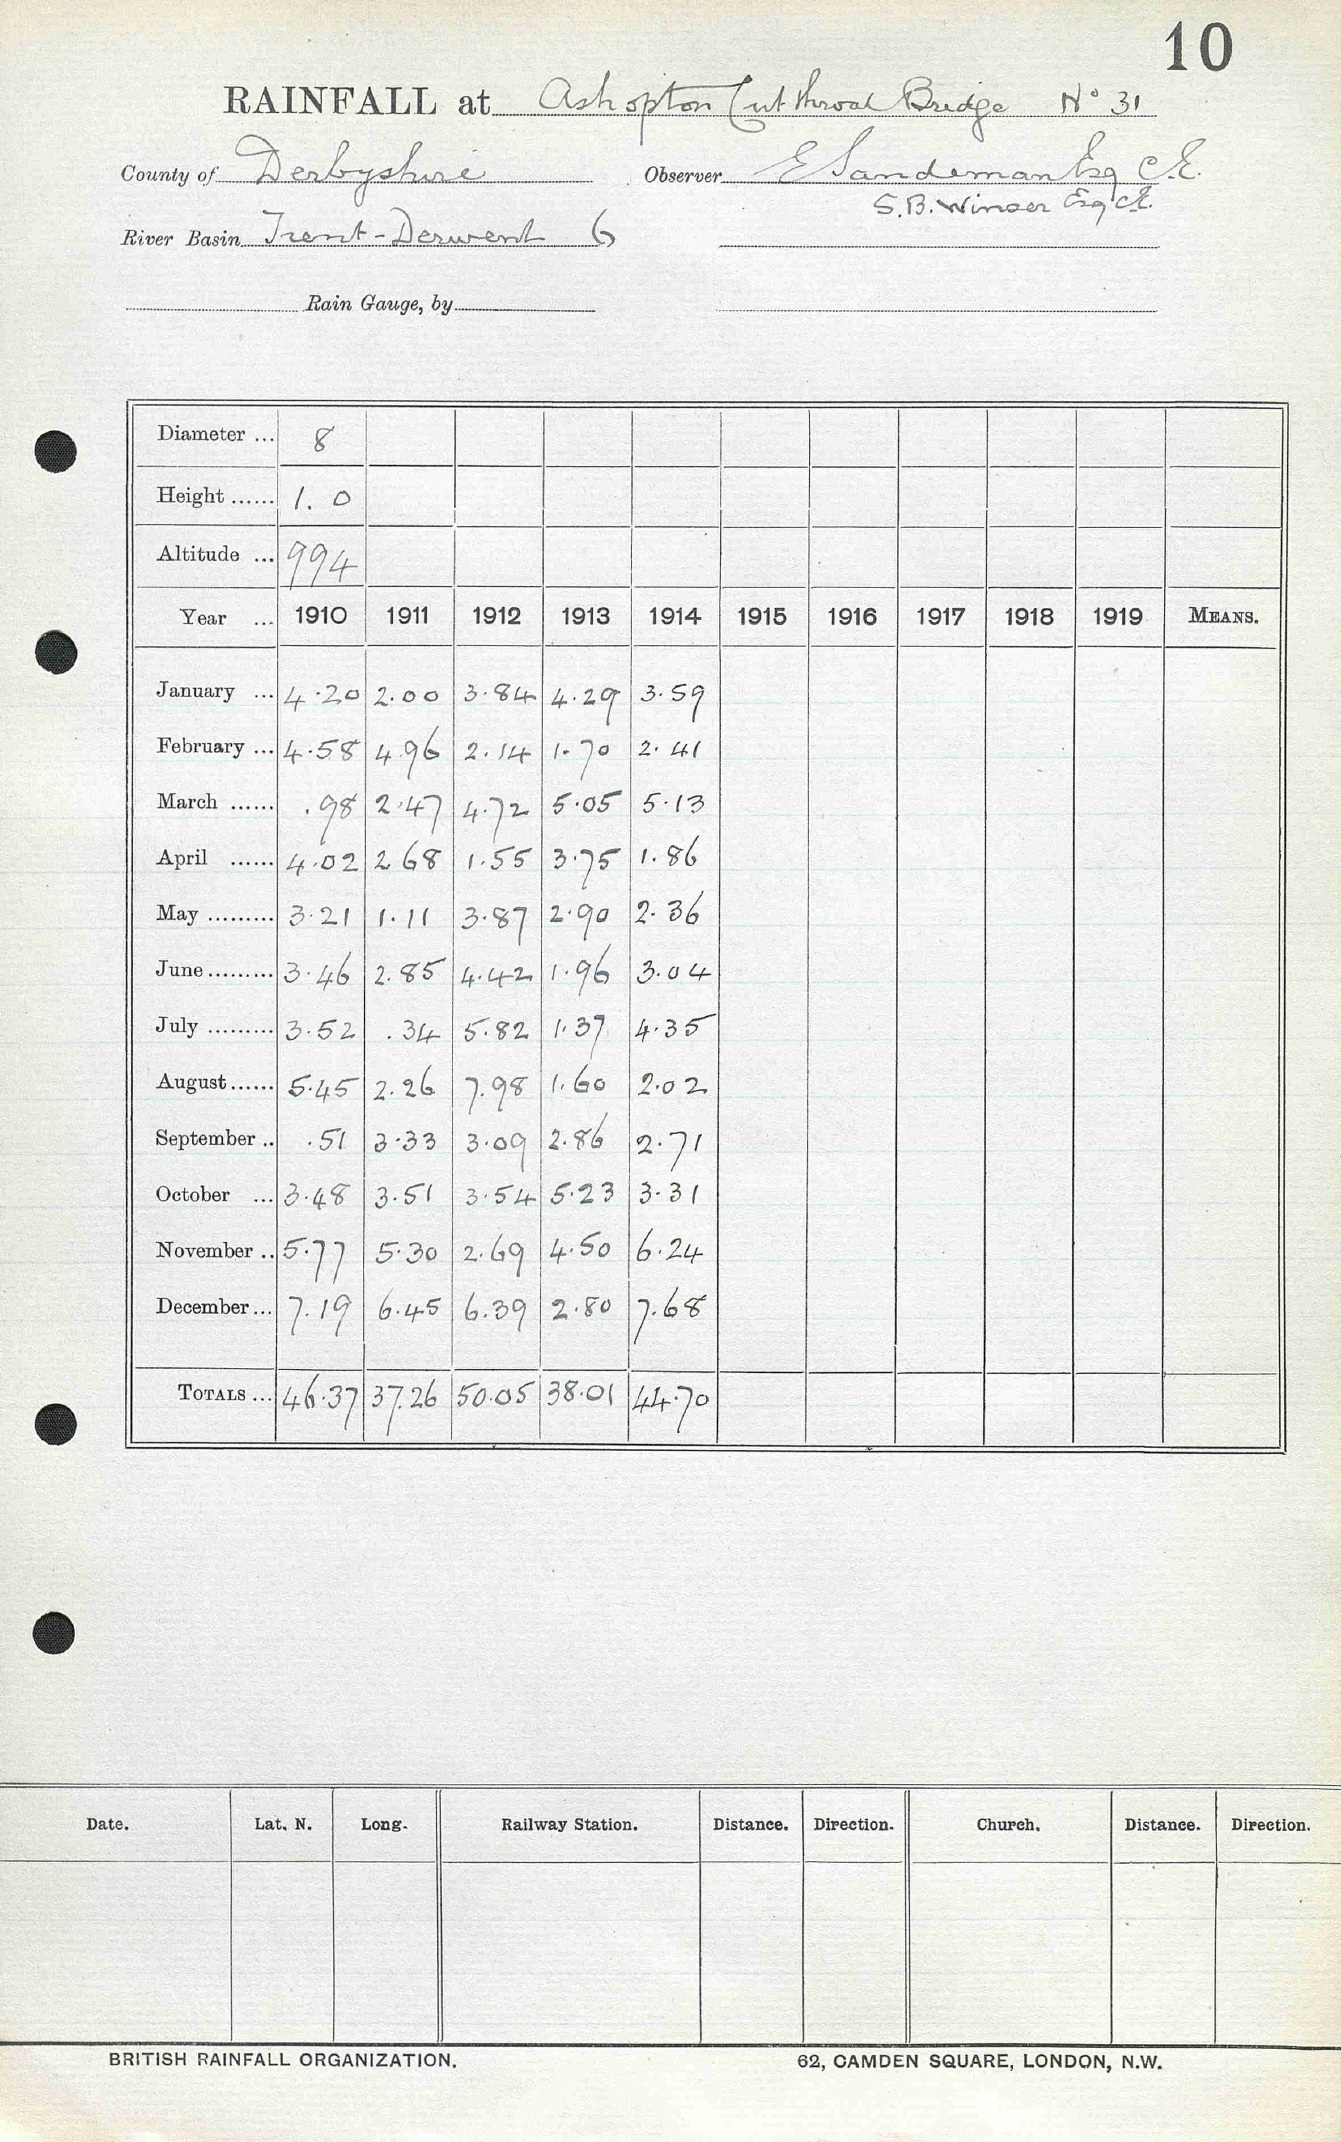 10
RAINFALL at Ashopton Cut throat Bridge No 31
County of Derbyshire Observer E Sandeman Esq C.E.
S.B. Winser Esq C.E.
River Basin Trent-Derwent 6
Rain Gauge, by
Diameter ... 8
Height ...... 1. 0
Altitude ... 994
Year ... 1910 1911 1912 1913 1914 1915 1916 1917 1918 1919 MEANS.
January ... 4.20 2.00 3.84 4.29 3.59
February ... 4.58 4.96 2.14 1.70 2.41
March ...... .98 2.47 4.72 5.05 5.13
April ...... 4.02 2.68 1.55 3.75 1.86
May ......... 3.21 1.11 3.87 2.90 2.36
June ......... 3.46 2.85 4.42 1.96 3.04
July ......... 3.52 .34 5.82 1.37 4.35
August ...... 5.45 2.26 7.98 1.60 2.02
September .. .51 3.33 3.09 2.86 2.71
October ... 3.48 3.51 3.54 5.23 3.31
November .. 5.77 5.30 2.69 4.50 6.24
December ... 7.19 6.45 6.39 2.80 7.68
TOTALS ... 46.37 37.26 50.05 38.01 44.70
Date. Lat. N. Long. Railway Station. Distance. Direction. Church. Distance. Direction.
BRITISH RAINFALL ORGANIZATION. 62, CAMDEN SQUARE, LONDON, N.W.